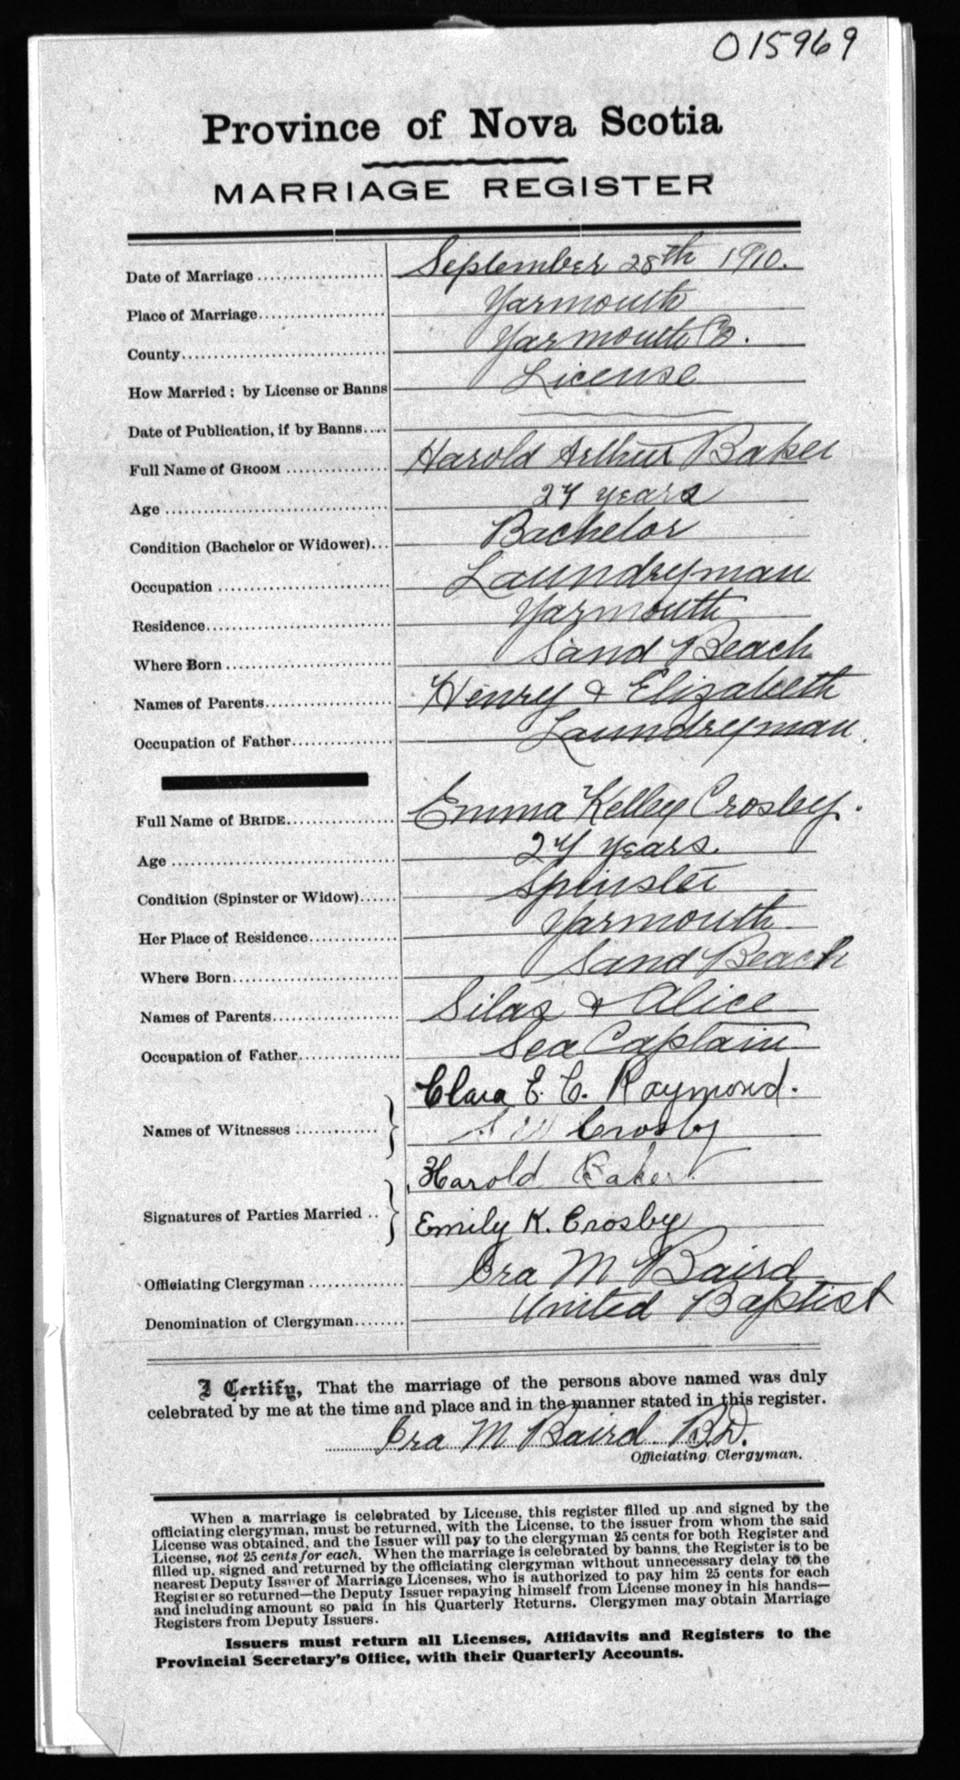 015969
Province of Nova Scotia
MARRIAGE REGISTER
Date of Marriage .................... September 28th 1910.
Place of Marriage.................... Yarmouth
County.................... Yarmouth Co.
How Married : by License or Banns License
Date of Publication, if by Banns....
Full Name of GROOM .................... Harold Arthur Baker
Age .................... 24 years
Condition (Bachelor or Widower)... Bachelor
Occupation .................... Laundryman
Residence.................... Yarmouth
Where Born .................... Sand Beach
Names of Parents.................... Henry & Elizabeth
Occupation of Father.................... Laundryman.
Full Name of BRIDE.................... Emma Kelley Crosby.
Age .................... 24 years.
Condition (Spinster or Widow)...... Spinster
Her Place of Residence.................... Yarmouth
Where Born.................... Sand Beach
Names of Parents.................... Silas & Alice
Occupation of Father.................... Sea Captain
Clara E. C. Raymond.
Names of Witnesses .............
Crosby
Harold Baker
Signatures of Parties Married ..
Emily K. Crosby
Officiating Clergyman .................... Ira M Baird
Denomination of Clergyman........ United Baptist
I Certify, That the marriage of the persons above named was duly
celebrated by me at the time and place and in the manner stated in this register.
Ira M Baird. B.D.
Officiating Clergyman.
When a marriage is celebrated by License, this register filled up and signed by the
officiating clergyman, must be returned, with the License, to the issuer from whom the said
License was obtained, and the Issuer will pay to the clergyman 25 cents for both Register and
License, not 25 cents for each. When the marriage is celebrated by banns, the Register is to be
filled up, signed and returned by the officiating clergyman without unnecessary delay to the
nearest Deputy Issuer of Marriage Licenses, who is authorized to pay him 25 cents for each
Register so returned—the Deputy Issuer repaying himself from License money in his hands—
and including amount so paid in his Quarterly Returns. Clergymen may obtain Marriage
Registers from Deputy Issuers.
Issuers must return all Licenses, Affidavits and Registers to the
Provincial Secretary's Office, with their Quarterly Accounts.